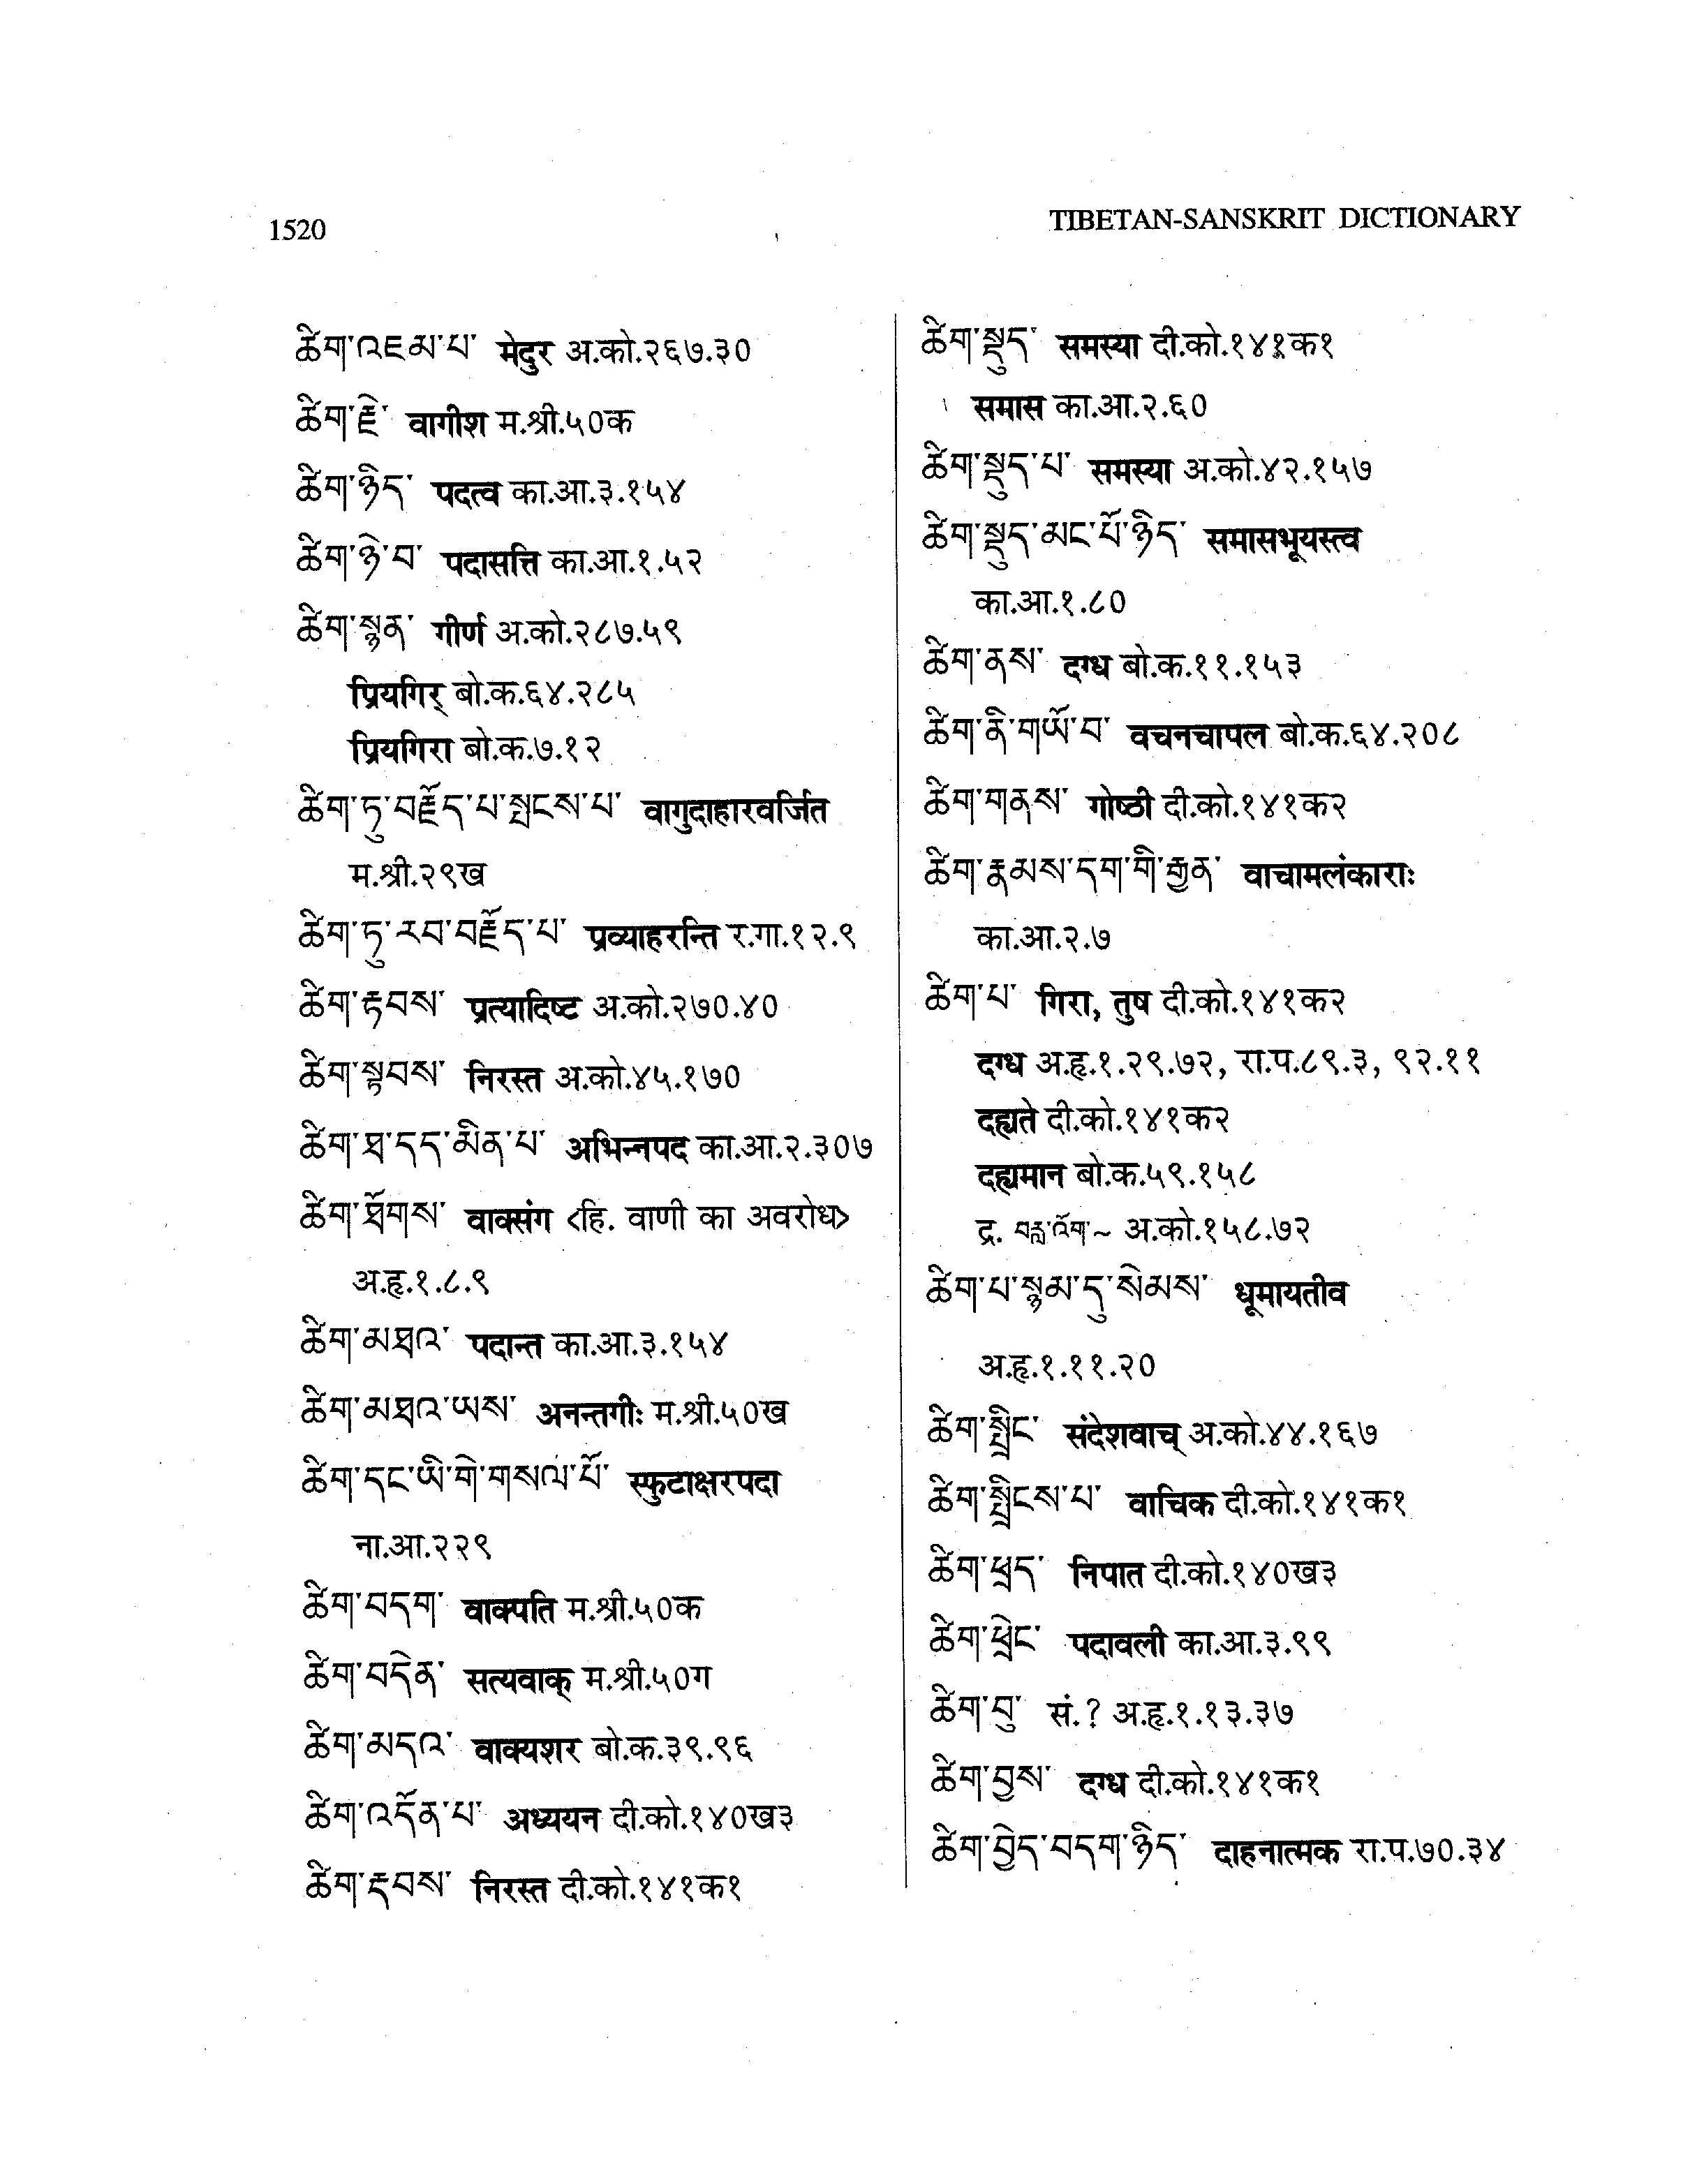 1520
TIBETAN-SANSKRIT DICTIONARY
ཚིག་འཇམ་པ་ मेदुर अ.को.२६७.३०
ཚིག་རྗེ་ वागीश म.श्री.५०क
ཚིག་ཉིད་ पदत्व का.आ.३.१५४
ཚིག་ཉེ་བ་ पदासत्ति का.आ.१.५२
ཚིག་སྙན་ गीर्ण अ.को.२८७.५९
प्रियगिर् बो.क.६४.२८५
प्रियगिरा बो.क.७.१२
ཚིག་ཏུ་བརྗོད་པ་སྤངས་པ་ वागुदाहारवर्जित
म.श्री.२९ख
ཚིག་ཏུ་རབ་བརྗོད་པ་ प्रव्याहरन्ति र.गा.१२.९
ཚིག་རྟབས་ प्रत्यादिष्ट अ.को.२७०.४०
ཚིག་སྟབས་ निरस्त अ.को.४५.१७०
ཚིག་ཐ་དད་མིན་པ་ अभिन्नपद का.आ.२.३०७
ཚིག་ཐོགས་ वाक्संग <हि. वाणी का अवरोध>
अ.हृ.१.८.९
ཚིག་མཐའ་ पदान्त का.आ.३.१५४
ཚིག་མཐའ་ཡས་ अनन्तगीः म.श्री.५०ख
ཚིག་དང་ཡི་གེ་གསལ་པོ་ स्फुटाक्षरपदा
ना.आ.२२९
ཚིག་བདག་ वाक्पति म.श्री.५०क
ཚིག་བདེན་ सत्यवाक् म.श्री.५०ग
ཚིག་མདའ་ वाक्यशर बो.क.३९.९६
ཚིག་འདོན་པ་ अध्ययन दी.को.१४०ख३
ཚིག་རྡབས་ निरस्त दी.को.१४१क१
ཚིག་སྡུད་ समस्या दी.को.१४१क१
समास का.आ.२.६०
ཚིག་སྡུད་པ་ समस्या अ.को.४२.१५७
ཚིག་སྡུད་མང་པོ་ཉིད་ समासभूयस्त्व
का.आ.१.८०
ཚིག་ནས་ दग्ध बो.क.११.१५३
ཚིག་ནི་གཡོ་བ་ वचनचापल बो.क.६४.२०८
ཚིག་གནས་ गोष्ठी दी.को.१४१क२
ཚིག་རྣམས་དག་གི་རྒྱན་ वाचामलंकाराः
का.आ.२.७
ཚིག་པ་ गिरा, तुष दी.को.१४१क२
दग्ध अ.हृ.१.२९.७२, रा.प.८९.३, ९२.११
दह्यते दी.को.१४१क२
दह्यमान बो.क.५९.१५८
द्र. བརླ་འོག་~ अ.को.१५८.७२
ཚིག་པ་སྙམ་དུ་སེམས་ धूमायतीव
अ.हृ.१.११.२०
ཚིག་སྤྲིང་ संदेशवाच् अ.को.४४.१६७
ཚིག་སྤྲིངས་པ་ वाचिक दी.को.१४१क१
ཚིག་ཕྲད་ निपात दी.को.१४०ख३
ཚིག་ཕྲེང་ पदावली का.आ.३.९९
ཚིག་བུ་ सं.? अ.हृ.१.१३.३७
ཚིག་བྱས་ दग्ध दी.को.१४१क१
ཚིག་བྱེད་བདག་ཉིད་ दाहनात्मक रा.प.७०.३४